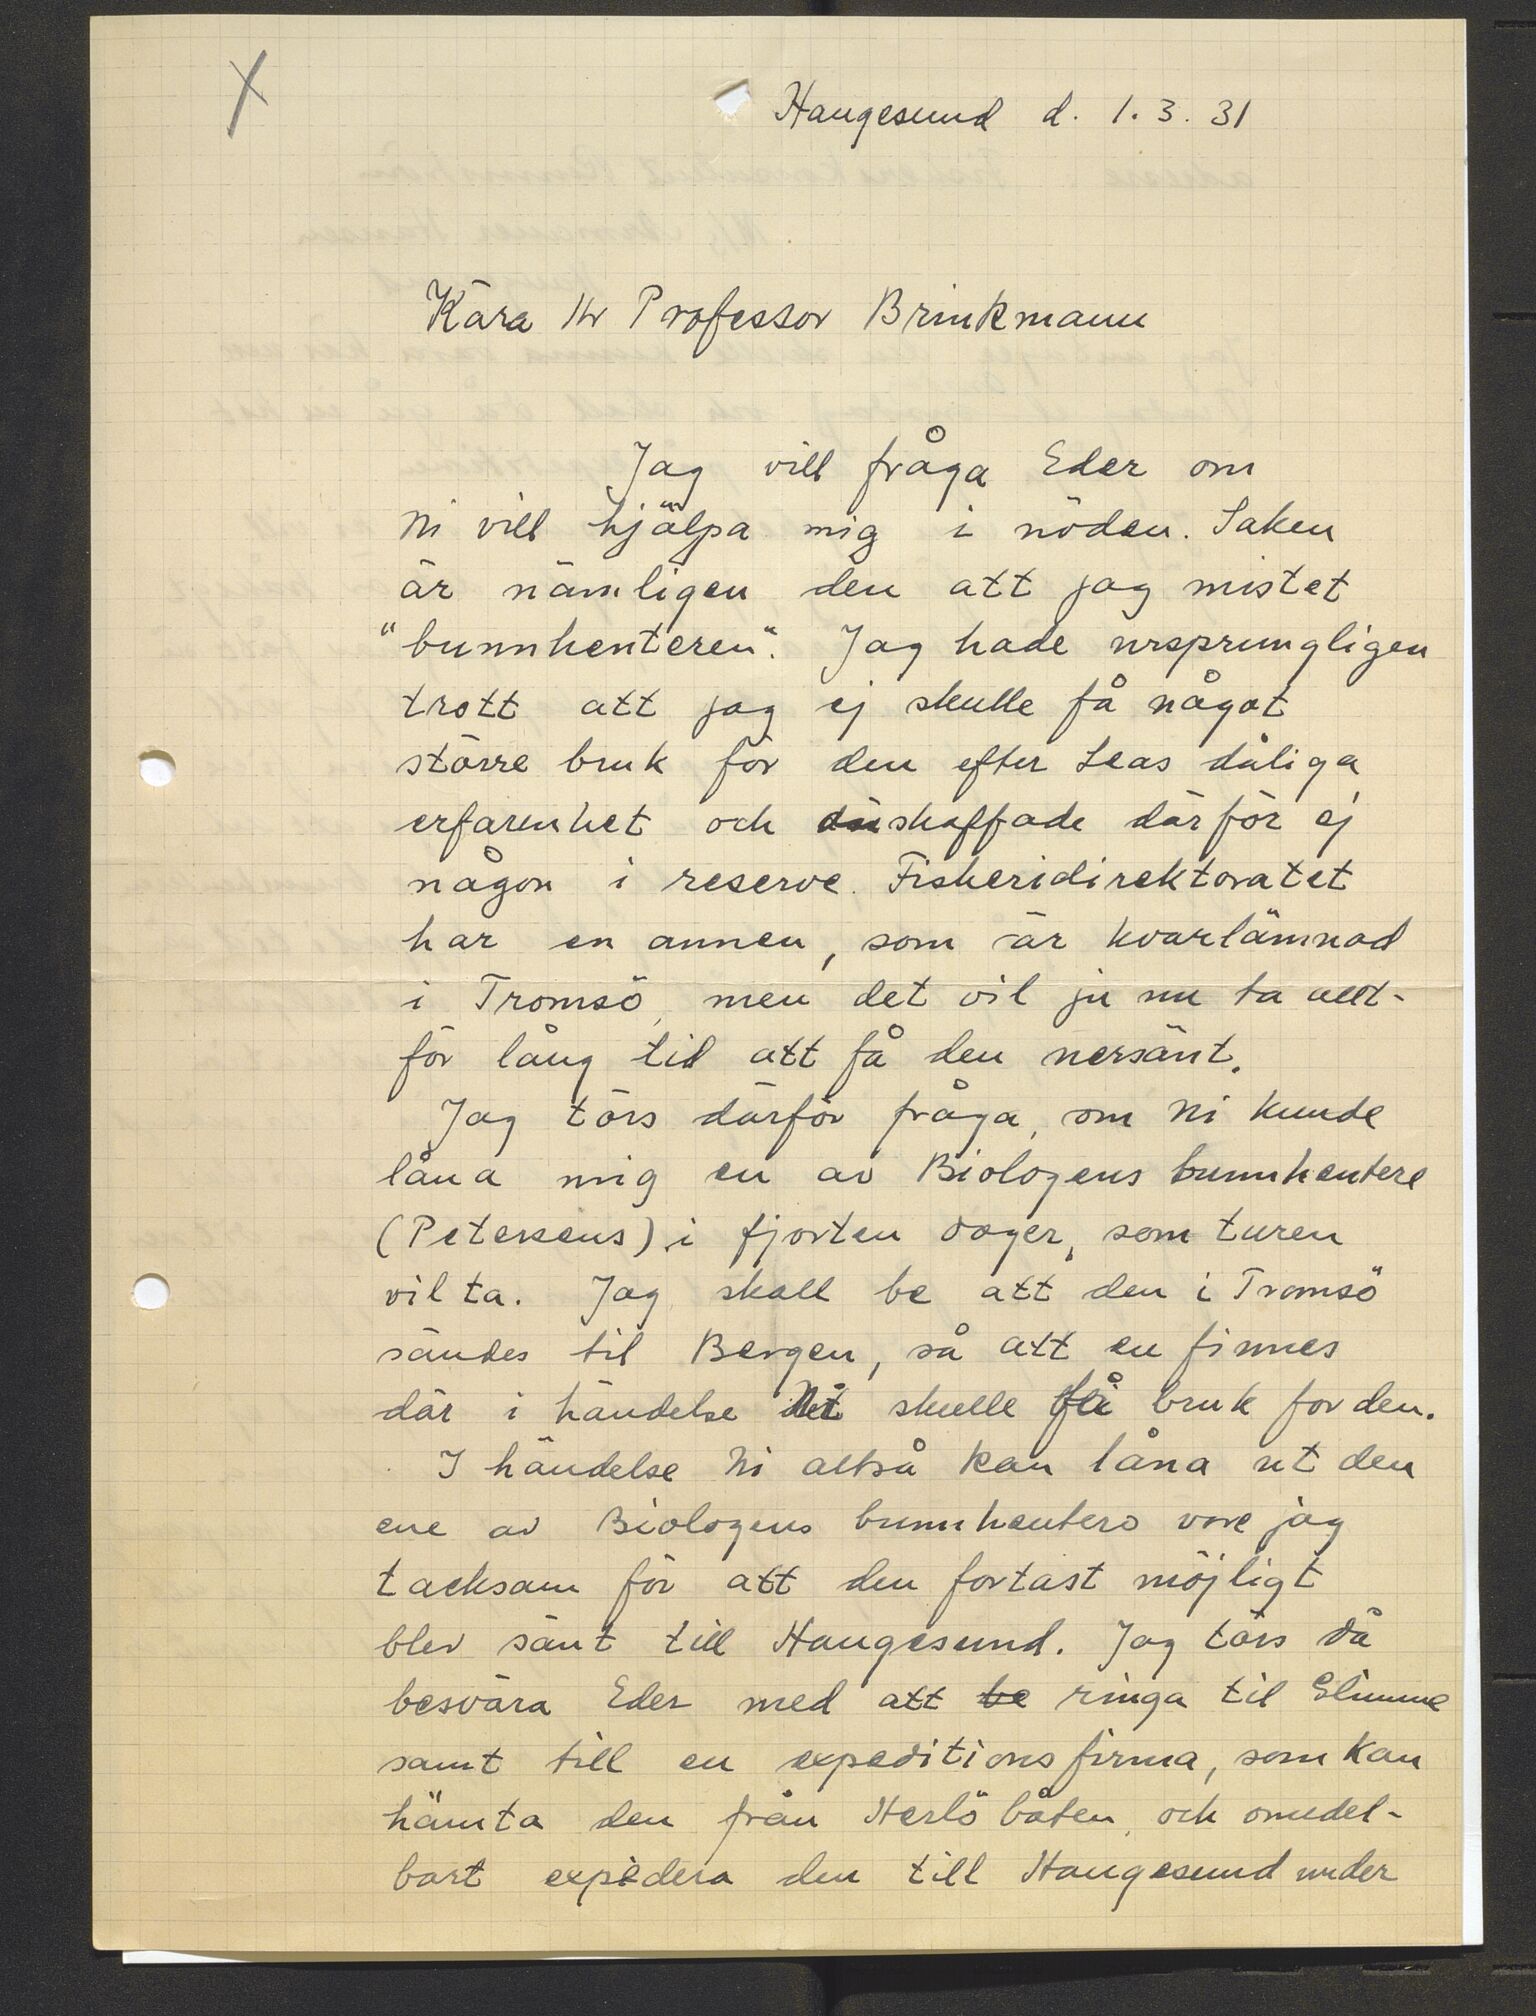 Haugesund d. 1.3.31
Kära Hr Professor Brinkmann
Jag vill fråga Eder om
Ni vill hjälpa mig i nöden. Saken
är nämligen den att jag mistet
"bunnhenteren". Jag hade ursprungligen
trott att jag ej skulle få något
större bruk för den efter Leas dåliga
erfarenhet och skaffade därför ej
någon i reserve. Fisheridirektoratet
har en annen, som är kvarlämnad
i Tromsö, men det vil ju nu ta allt-
för lång tid att få den nersänt.
Jag törs därför fråga, om Ni kunde
låna mig en av Biologens bunnhentere
(Petersens) i fjorten dager, som turen
vil ta. Jag skall be att den i Tromsö
sändes til Bergen, så att en finnes
där i händelse Ni skulle få bruk for den.
I händelse Ni altså kan låna ut den
ene av Biologens bunnhentero vore jag
tacksam för att den fortast möjligt
blev sänt till Haugesund. Jag törs då
besvära Eder med att be ringa til Glimme
samt till en expeditionsfirma, som kan
hämta den från Herlö båten, och omedel-
bart expedera den till Haugesund under